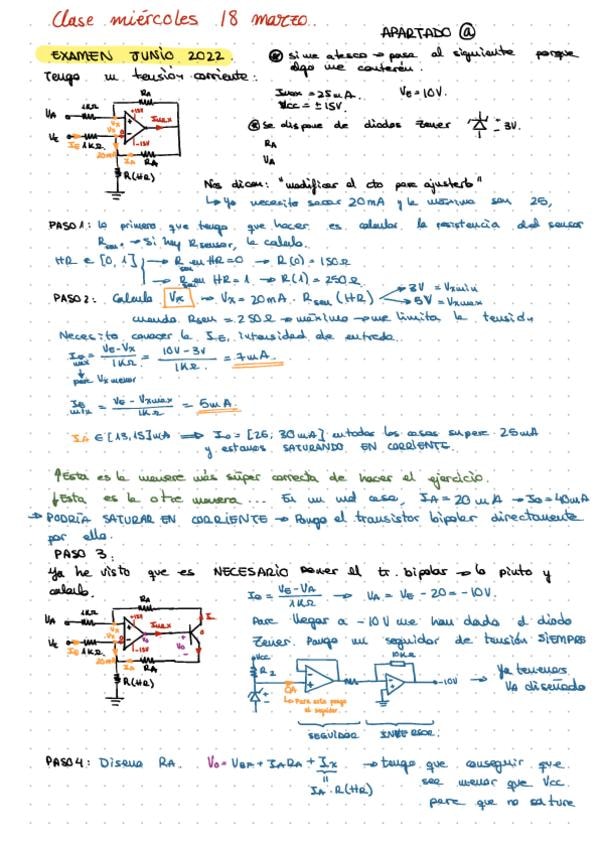 Clase miércoles 18 marzo.
APARTADO ⓐ
EXAMEN JUNIO 2022.
Tengo un tensión corriente:
⊛ Si me atasco → pasa al siguiente porque
algo me contarán.
Imax = 25mA. VE = 10V.
Vcc = ± 15V.
⊛ Se dispone de diodos zener 3V.
RA
VA
RA
1KΩ
+15V
VA
VE
Vx
Imax
-15V
IE 1KΩ
20mA
IA RA
R(HR)
Nos dicen: "modificar el cto para ajustarlo"
↳ Yo necesito sacar 20mA y la máxima son 25,
PASO 1: lo primero que tengo que hacer es calcular la resistencia del sensor
Rsen. → Si hay Rsensor, la calculo.
HR ∈ [0, 1] → Rsen HR=0 → R(0) = 150Ω
→ Rsen HR=1 → R(1) = 250Ω
PASO 2: Calculo Vx → Vx = 20mA. Rsen (HR) → 3V = Vxmin
→ 5V = Vxmax
cuando Rsen = 250Ω → máximo → me limita la tensión
Necesito conocer la IE, intensidad de entrada.
IE max = VE-Vx / 1KΩ = 10V - 3V / 1KΩ = 7mA.
para Vx menor
IE min = VE - Vxmax / 1KΩ = 5mA.
IA ∈ [13,15]mA ⟹ Io = [26, 30mA] en todos los casos supera 25mA
y estamos SATURANDO EN CORRIENTE.
↑ Esta es la manera más súper correcta de hacer el ejercicio.
↓ Esta es la otra manera... En un mal caso, IA = 20mA → Io = 40mA
→ PODRÍA SATURAR EN CORRIENTE → Pongo el transistor bipolar directamente
por ello.
PASO 3:
Ya he visto que es NECESARIO poner el tr. bipolar → lo pinto y
calculo.
1KΩ
+15V
VA
VE
Vx
Imax
Vo
-15V
IE 1KΩ
20mA
IA RA
R(HR)
IE = VE-VA / 1KΩ → VA = VE - 20 = -10V.
Para llegar a -10V me han dado el diodo
Zener. Pongo un seguidor de tensión SIEMPRE
+Vcc
RZ
10KΩ
-10V → Ya tenemos
VA diseñado
↳ Para esto pongo
el seguidor.
SEGUIDOR INVERSOR.
PASO 4: Diseño RA. Vo = VBE + IARA + Ix → tengo que conseguir que
IA · R(HR)
sea menor que Vcc
para que no sature